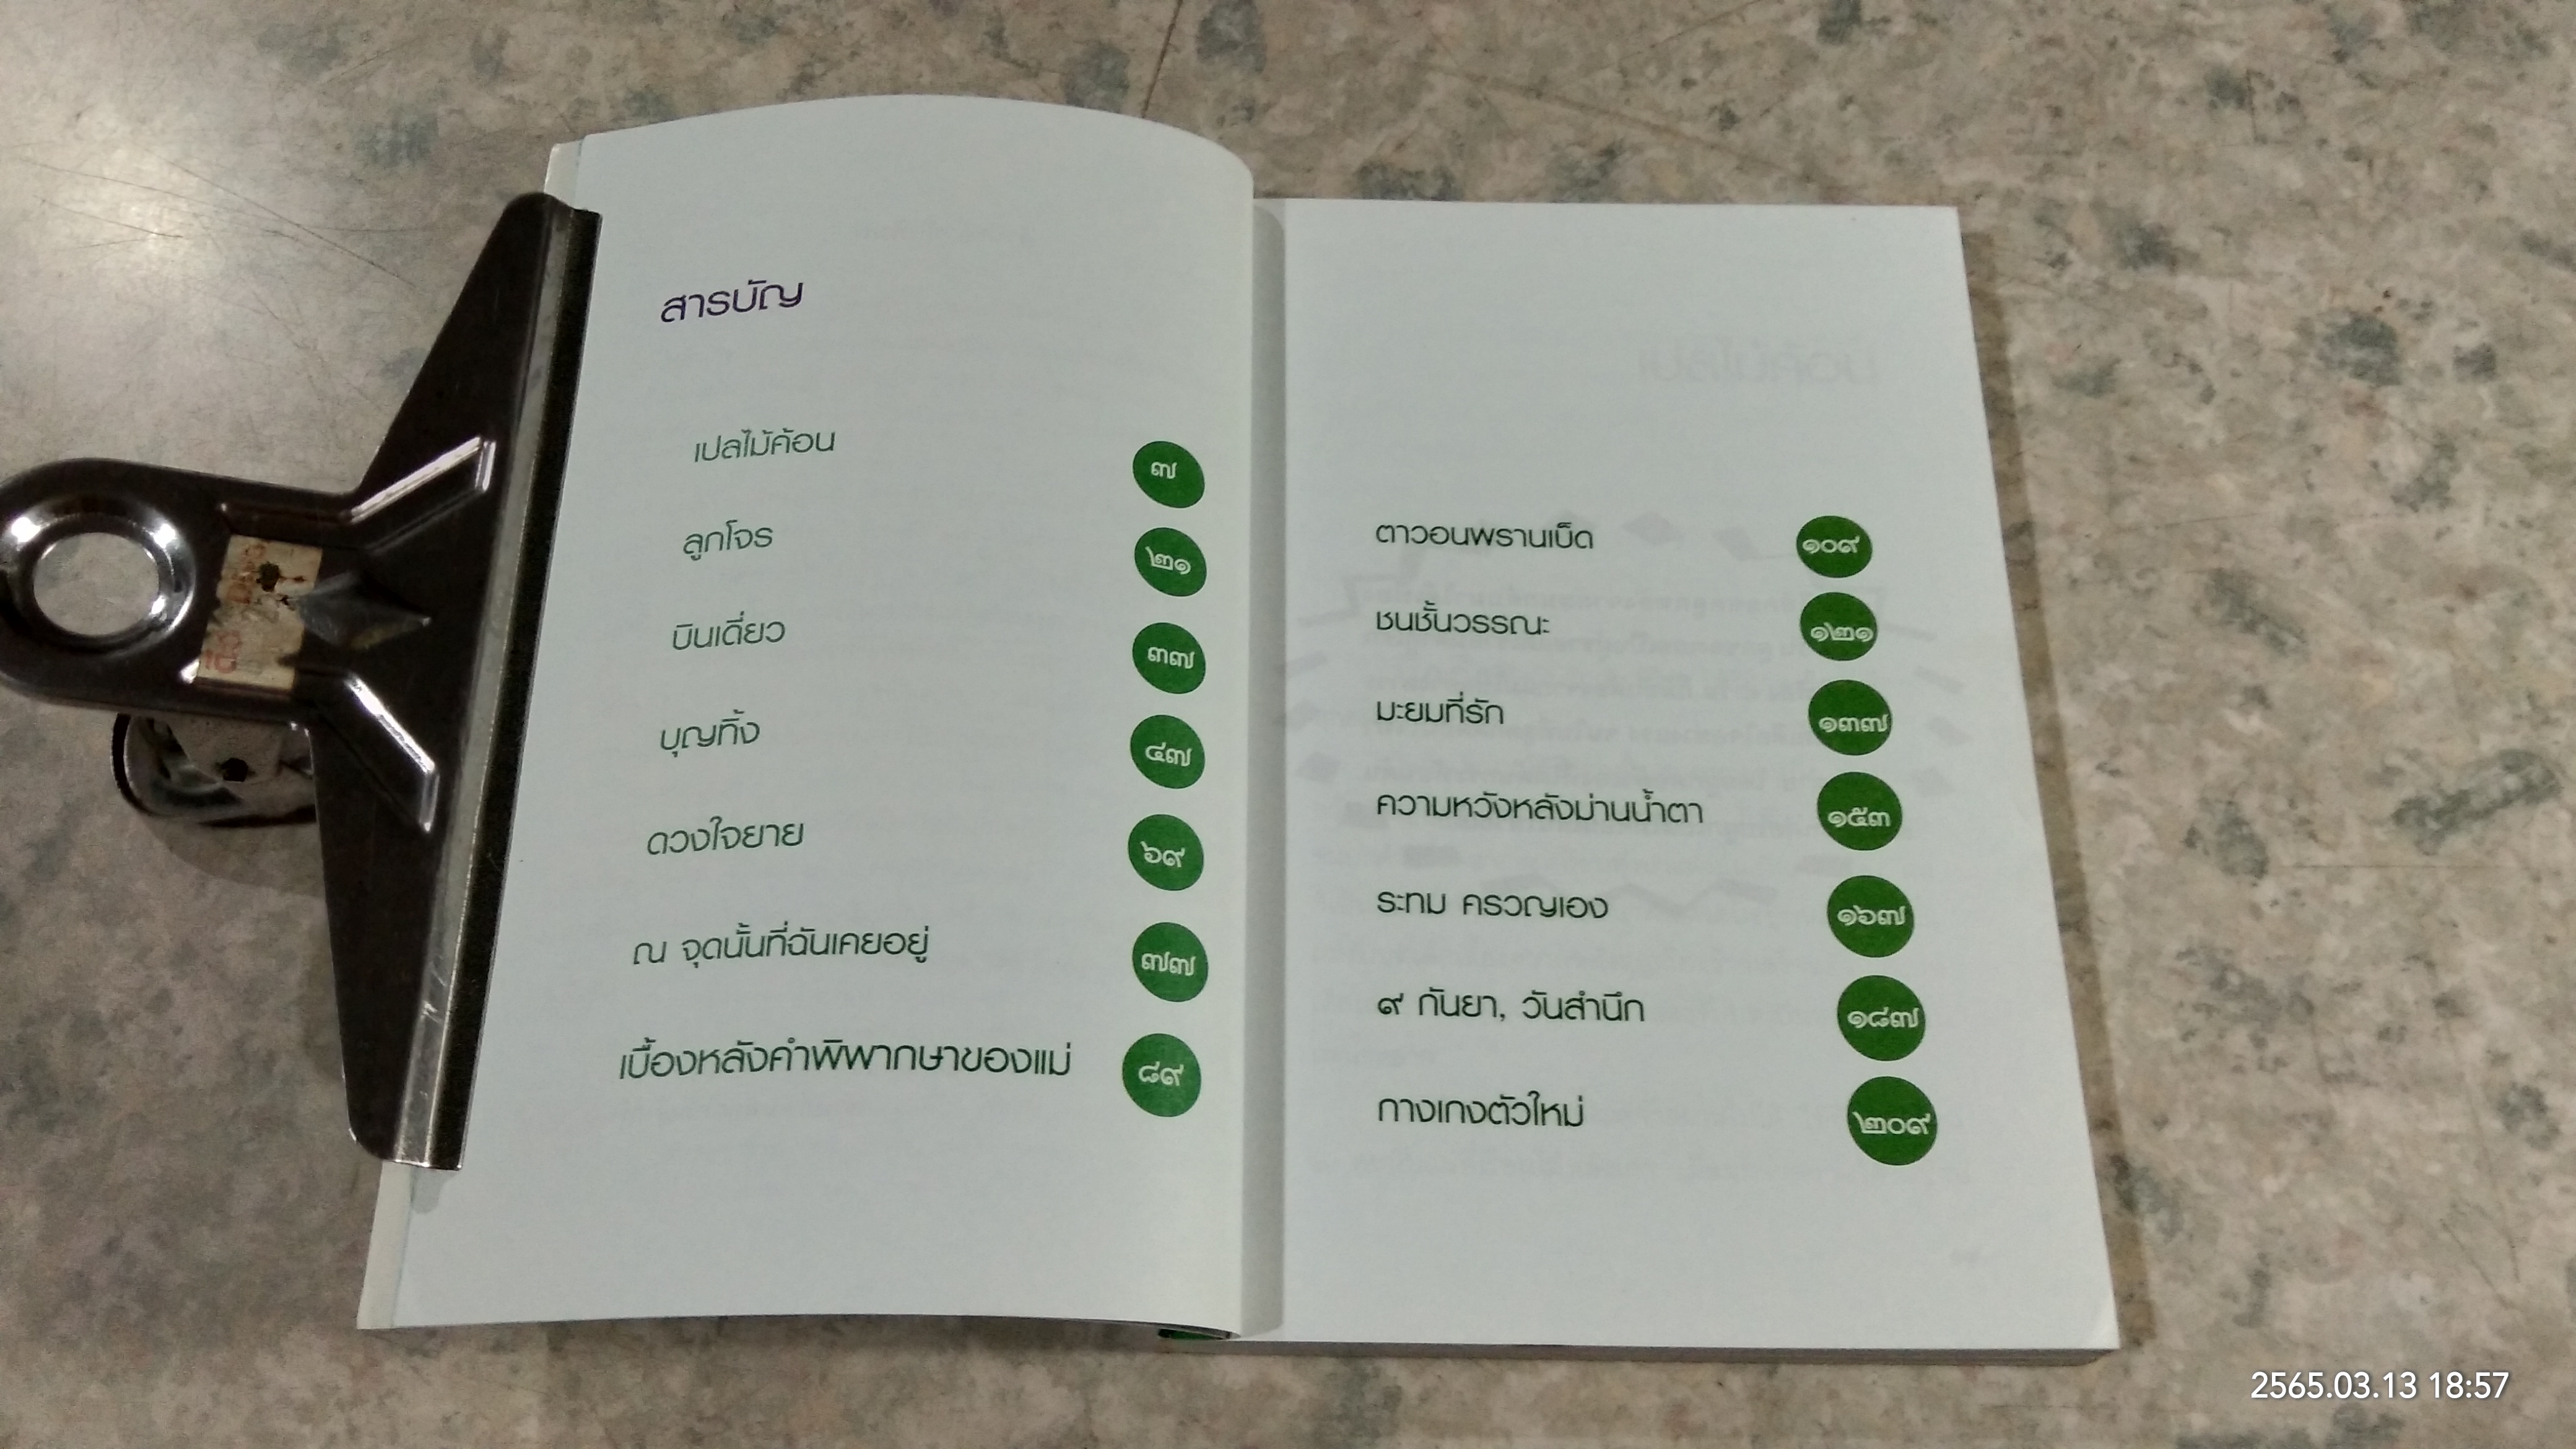 สารบัญ
เปลไม้ค้อน ๗
ลูกโจร ๒๑
บินเดี่ยว ๓๗
บุญทิ้ง ๔๗
ดวงใจยาย ๖๙
ณ จุดนั้นที่ฉันเคยอยู่ ๗๗
เบื้องหลังคำพิพากษาของแม่ ๘๙
ตาวอนพรานเบ็ด ๑๐๙
ชนชั้นวรรณะ ๑๒๑
มะยมที่รัก ๑๓๗
ความหวังหลังม่านน้ำตา ๑๕๓
ระทม ครวญเอง ๑๖๗
๙ กันยา, วันสำนึก ๑๘๗
กางเกงตัวใหม่ ๒๐๙
2565.03.13 18:57